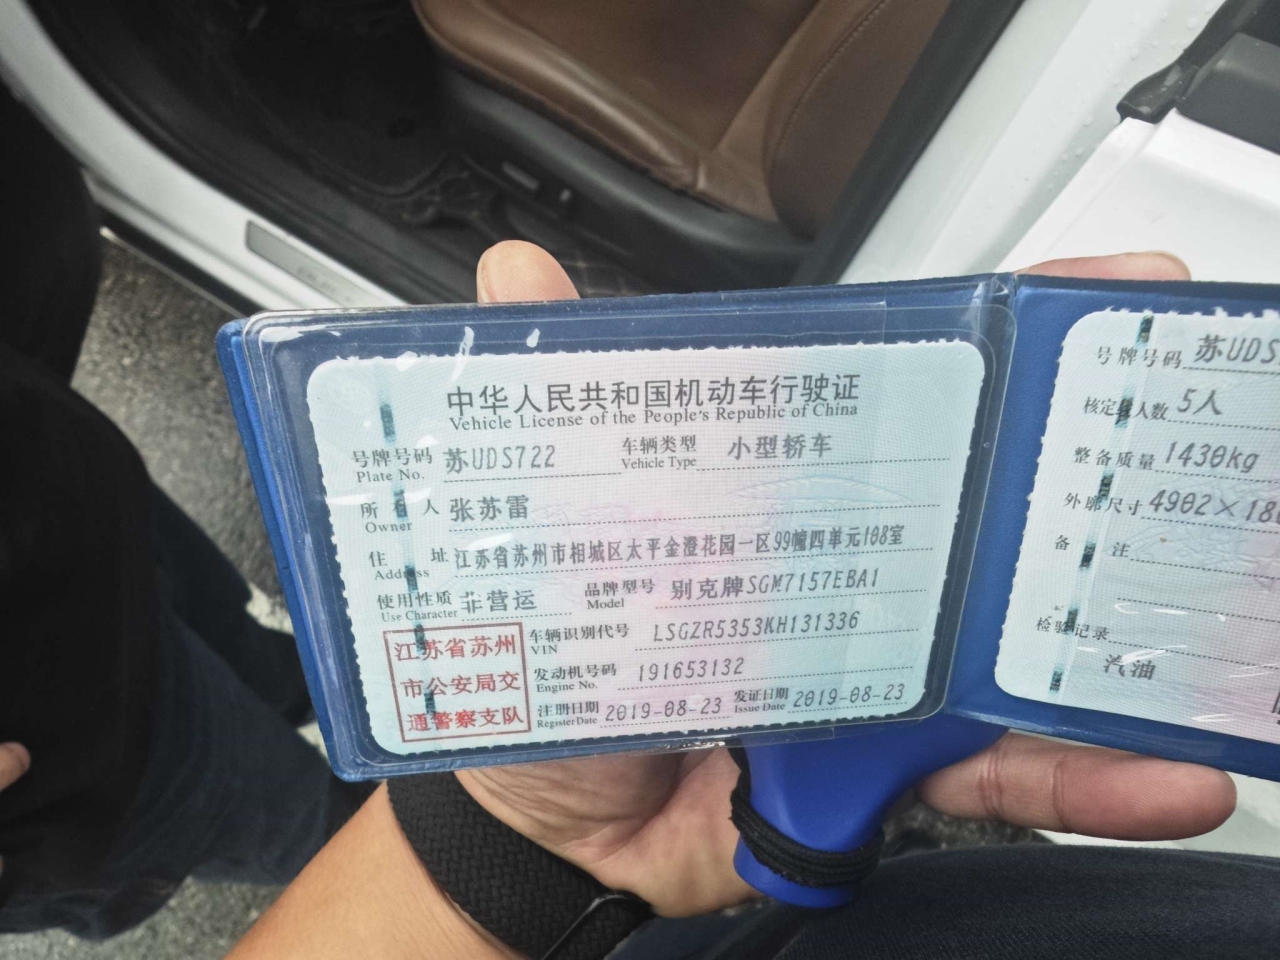 中华人民共和国机动车行驶证
Vehicle License of the People's Republic of China
号牌号码 苏UDS722 车辆类型 小型轿车
Plate No. Vehicle Type
所有人 张苏雷
Owner
住址 江苏省苏州市相城区太平金澄花园一区99幢四单元108室
Address
使用性质 非营运 品牌型号 别克牌SGM7157EBA1
Use Character Model
江苏省苏州
市公安局交
通警察支队
车辆识别代号 LSGZR5353KH131336
VIN
发动机号码 191653132
Engine No.
注册日期 2019-08-23 发证日期 2019-08-23
Register Date Issue Date
号牌号码 苏UDS
核定载人数 5人
整备质量 1430kg
外廓尺寸 4902×18
备注
检验记录
汽油